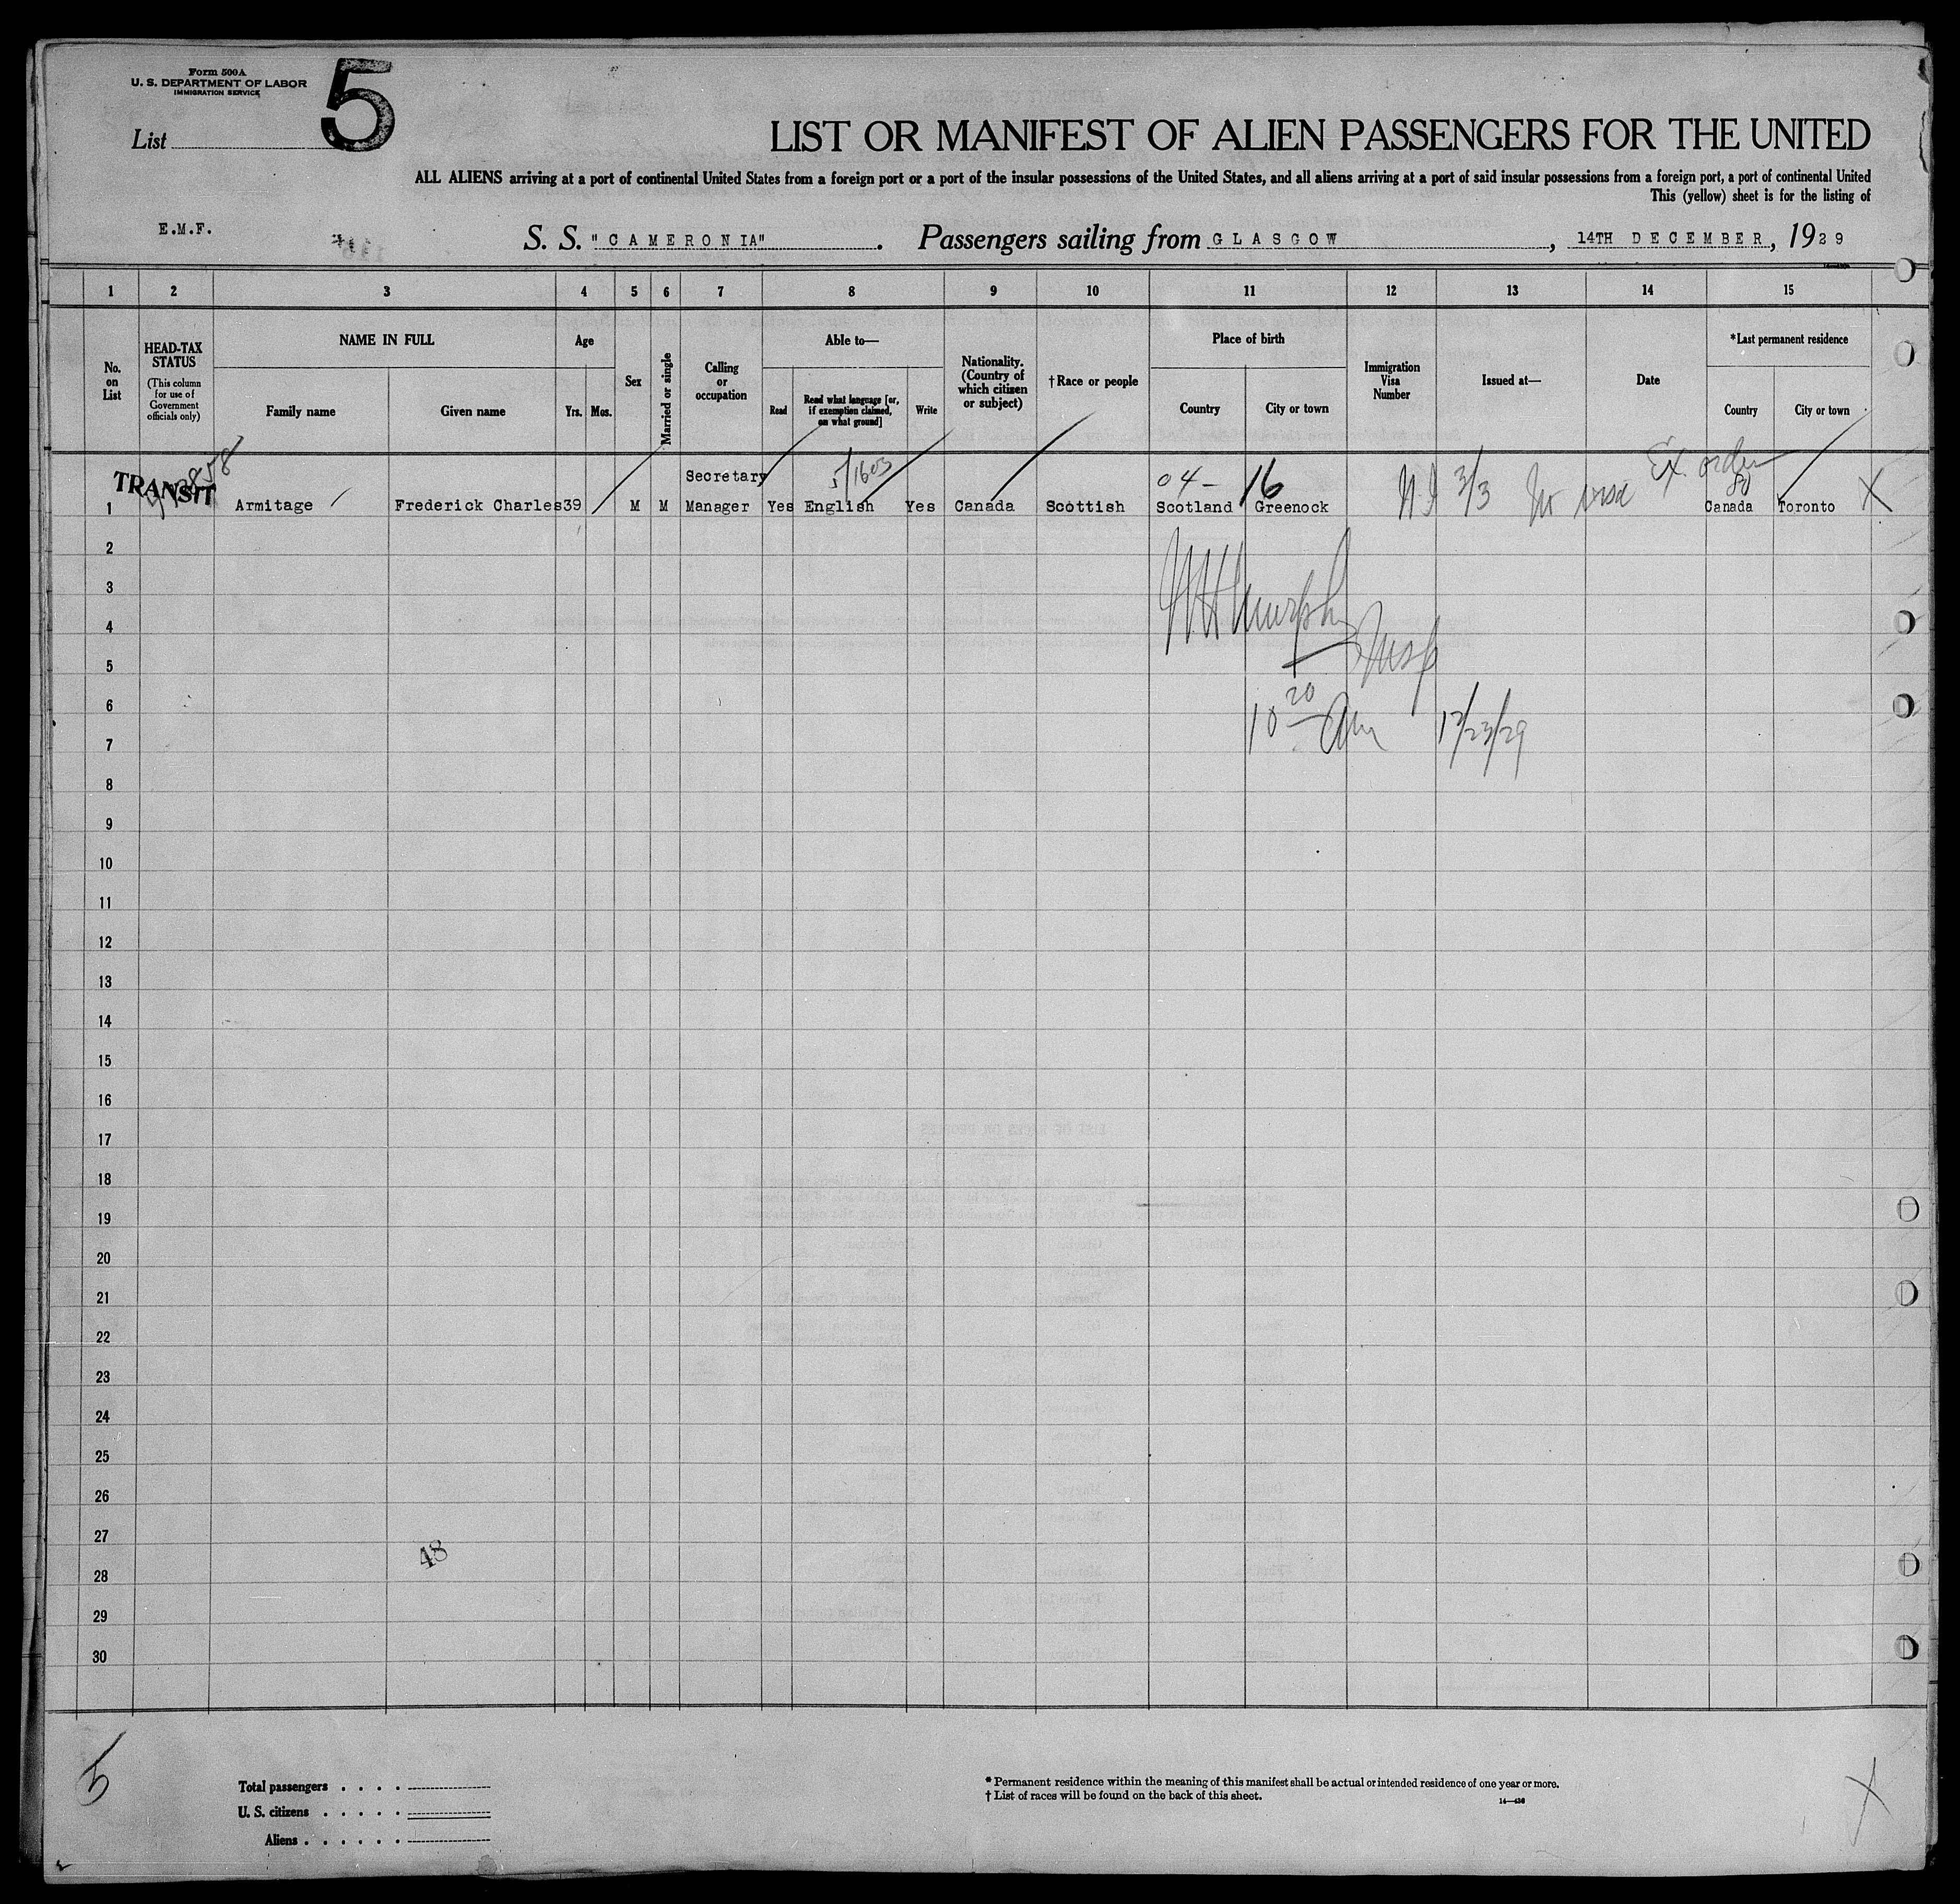 Form 500A
U. S. DEPARTMENT OF LABOR
IMMIGRATION SERVICE
5
List
LIST OR MANIFEST OF ALIEN PASSENGERS FOR THE UNITED
ALL ALIENS arriving at a port of continental United States from a foreign port or a port of the insular possessions of the United States, and all aliens arriving at a port of said insular possessions from a foreign port, a port of continental United
This (yellow) sheet is for the listing of
E.M.F.
S. S. "CAMERONIA". Passengers sailing from GLASGOW, 14TH DECEMBER, 1929
1 2 3 4 5 6 7 8 9 10 11 12 13 14 15
No. on List
HEAD-TAX STATUS
(This column for use of Government officials only)
NAME IN FULL
Family name
Given name
Age
Yrs. Mos.
Sex
Married or single
Calling or occupation
Able to—
Read
Read what language [or, if exemption claimed, on what ground]
Write
Nationality. (Country of which citizen or subject)
† Race or people
Place of birth
Country
City or town
Immigration Visa Number
Issued at—
Date
*Last permanent residence
Country
City or town
TRANSIT
Secretary
5/1603
04- 16
3/3
No visa
Ex. order
1 Armitage Frederick Charles 39 M M Manager Yes English Yes Canada Scottish Scotland Greenock Canada Toronto X
2
3
Murphy
4
5
Insp
6
10 20 am 12/23/29
7
8
9
10
11
12
13
14
15
16
17
18
19
20
21
22
23
24
25
26
27
48
28
29
30
5
Total passengers . . . .
U. S. citizens . . . . .
Aliens . . . . . .
* Permanent residence within the meaning of this manifest shall be actual or intended residence of one year or more.
† List of races will be found on the back of this sheet.
14—436
X